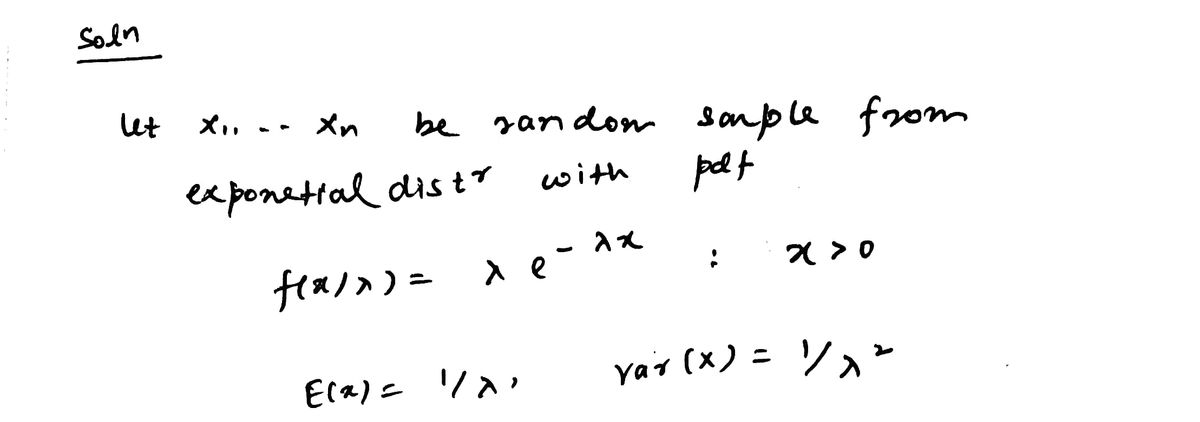 Soln
let x1, .. xn be random sample from
exponetial distr with pdf
f(x/λ) = λ e^{-λx} : x > 0
E(x) = 1/λ, Var (x) = 1/λ²